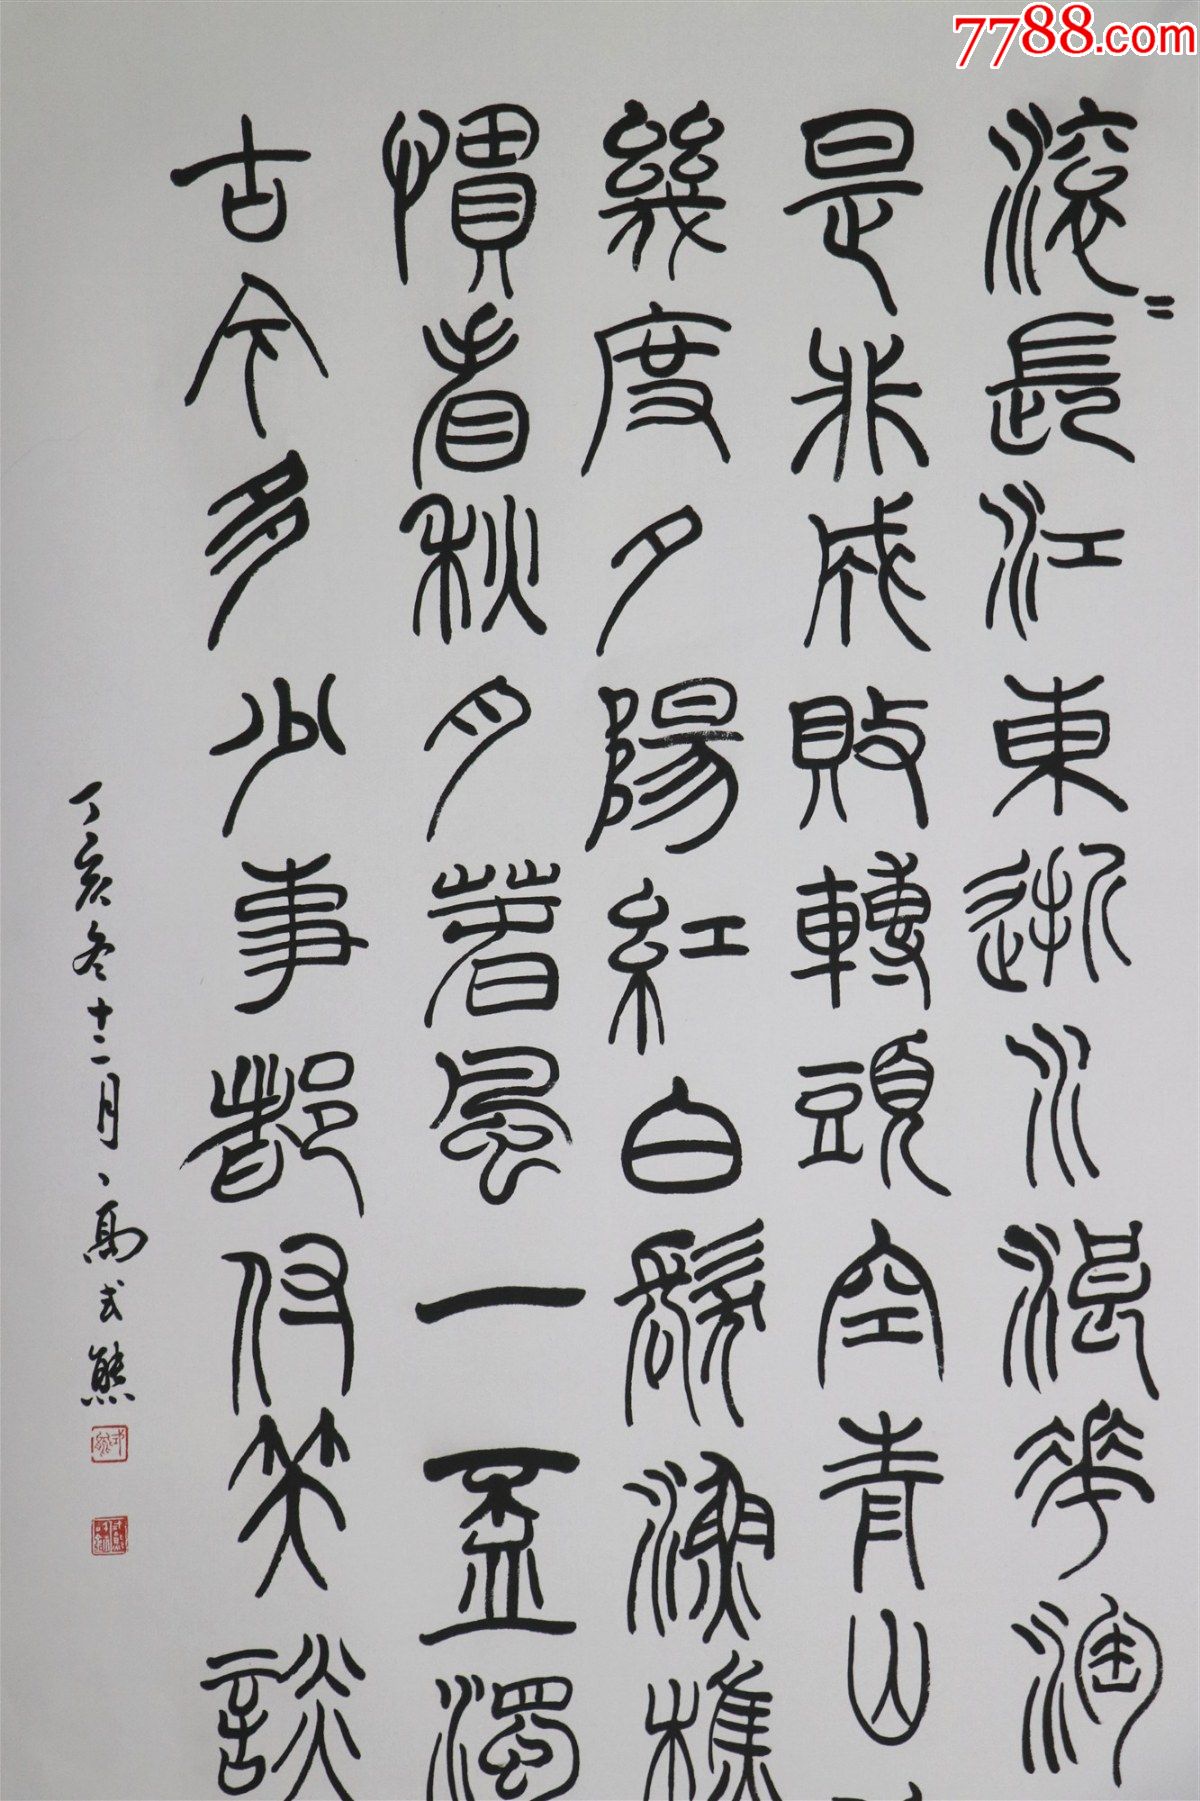 7788.com
滾〻長江東逝水浪花淘
是非成敗轉頭空青山
幾度夕陽紅白髮漁樵
慣看秋月春風一盃濁
古今多少事都付笑談
丁亥冬十二月、高式熊